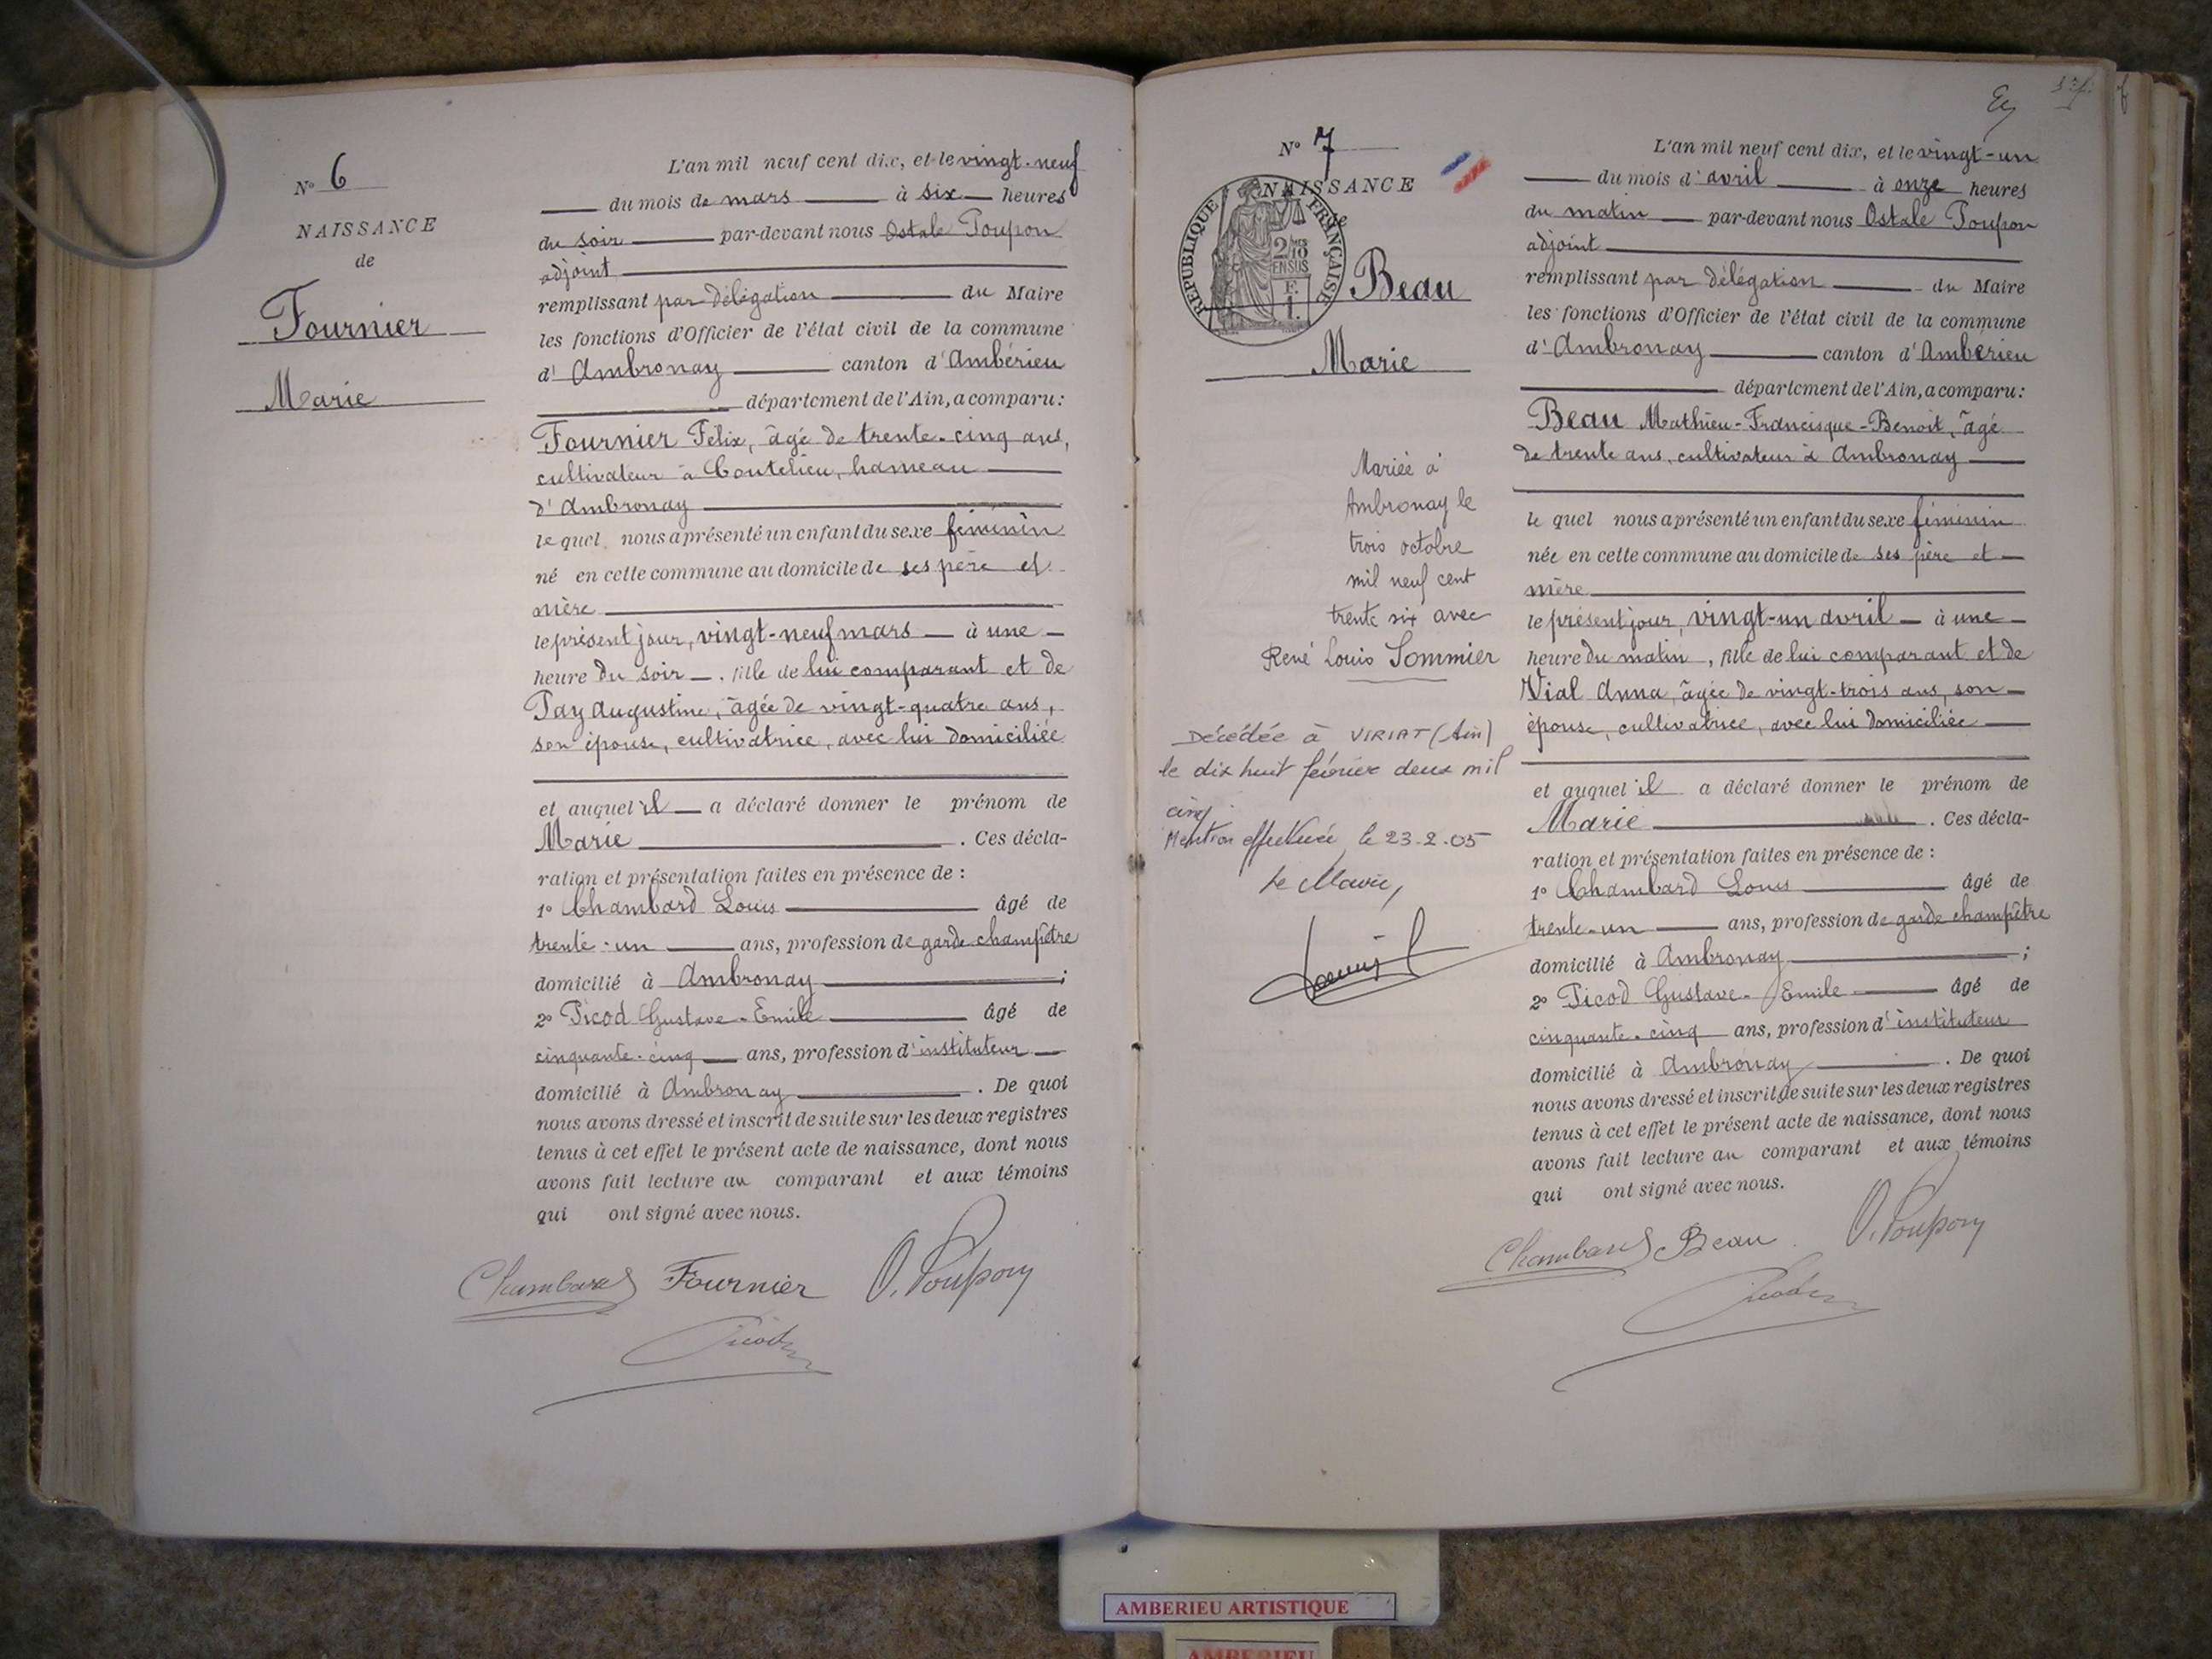 N° 6
NAISSANCE
de
Fournier
Marie
L'an mil neuf cent dix, et le vingt-neuf
du mois de mars à six heures
du soir par-devant nous Ostale Poupon
adjoint
remplissant par délégation du Maire
les fonctions d'Officier de l'état civil de la commune
d'Ambronay canton d'Ambérieu
département de l'Ain, a comparu:
Fournier Félix, âgé de trente-cinq ans,
cultivateur à Coutelieu, hameau
d'Ambronay
lequel nous a présenté un enfant du sexe féminin
né en cette commune au domicile de ses père et
mère
le présent jour, vingt-neuf mars à une
heure du soir, fille de lui comparant et de
Pay Augustine, âgée de vingt-quatre ans,
son épouse, cultivatrice, avec lui domiciliée
et auquel il a déclaré donner le prénom de
Marie. Ces décla-
ration et présentation faites en présence de :
1° Chambard Louis âgé de
trente-un ans, profession de garde champêtre
domicilié à Ambronay ;
2° Picod Gustave-Emile âgé de
cinquante-cinq ans, profession d'instituteur
domicilié à Ambronay. De quoi
nous avons dressé et inscrit de suite sur les deux registres
tenus à cet effet le présent acte de naissance, dont nous
avons fait lecture au comparant et aux témoins
qui ont signé avec nous.
Chambard Fournier O. Poupon
Picod
N° 7
NAISSANCE
de
REPUBLIQUE FRANÇAISE
2/10 EN SUS
F.
1.
Beau
Marie
Mariée à
Ambronay le
trois octobre
mil neuf cent
trente six avec
René Louis Sommier
Décédée à VIRIAT (Ain)
le dix huit février deux mil
cinq.
Mention effectuée le 23.2.05
Le Maire,
L'an mil neuf cent dix, et le vingt-un
du mois d'avril à onze heures
du matin par-devant nous Ostale Poupon
adjoint
remplissant par délégation du Maire
les fonctions d'Officier de l'état civil de la commune
d'Ambronay canton d'Ambérieu
département de l'Ain, a comparu:
Beau Mathieu-Francisque-Benoit, âgé
de trente ans, cultivateur à Ambronay
lequel nous a présenté un enfant du sexe féminin
née en cette commune au domicile de ses père et
mère
le présent jour, vingt-un avril à une
heure du matin, fille de lui comparant et de
Vial Anna, âgée de vingt-trois ans, son
épouse, cultivatrice, avec lui domiciliée
et auquel il a déclaré donner le prénom de
Marie. Ces décla-
ration et présentation faites en présence de :
1° Chambard Louis âgé de
trente-un ans, profession de garde champêtre
domicilié à Ambronay ;
2° Picod Gustave-Emile âgé de
cinquante-cinq ans, profession d'instituteur
domicilié à Ambronay. De quoi
nous avons dressé et inscrit de suite sur les deux registres
tenus à cet effet le présent acte de naissance, dont nous
avons fait lecture au comparant et aux témoins
qui ont signé avec nous.
Chambard Beau O. Poupon
Picod
AMBERIEU ARTISTIQUE
AMBERIEU